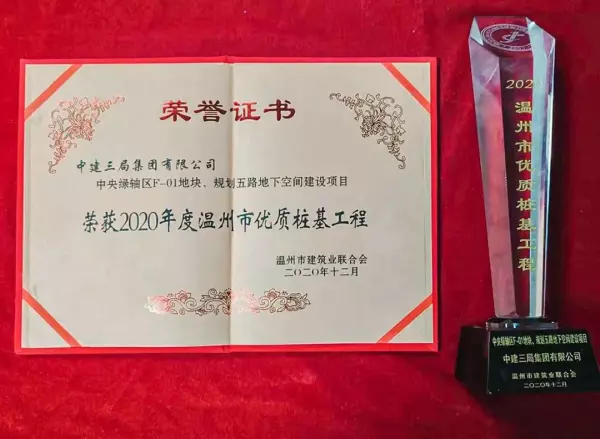 荣誉证书
中建三局集团有限公司
中央绿轴区F-01地块、规划五路地下空间建设项目
荣获2020年度温州市优质桩基工程
温州市建筑业联合会
二〇二〇年十二月
2020
温州市优质桩基工程
中央绿轴区F-01地块、规划五路地下空间建设项目
中建三局集团有限公司
温州市建筑业联合会
二〇二〇年十二月